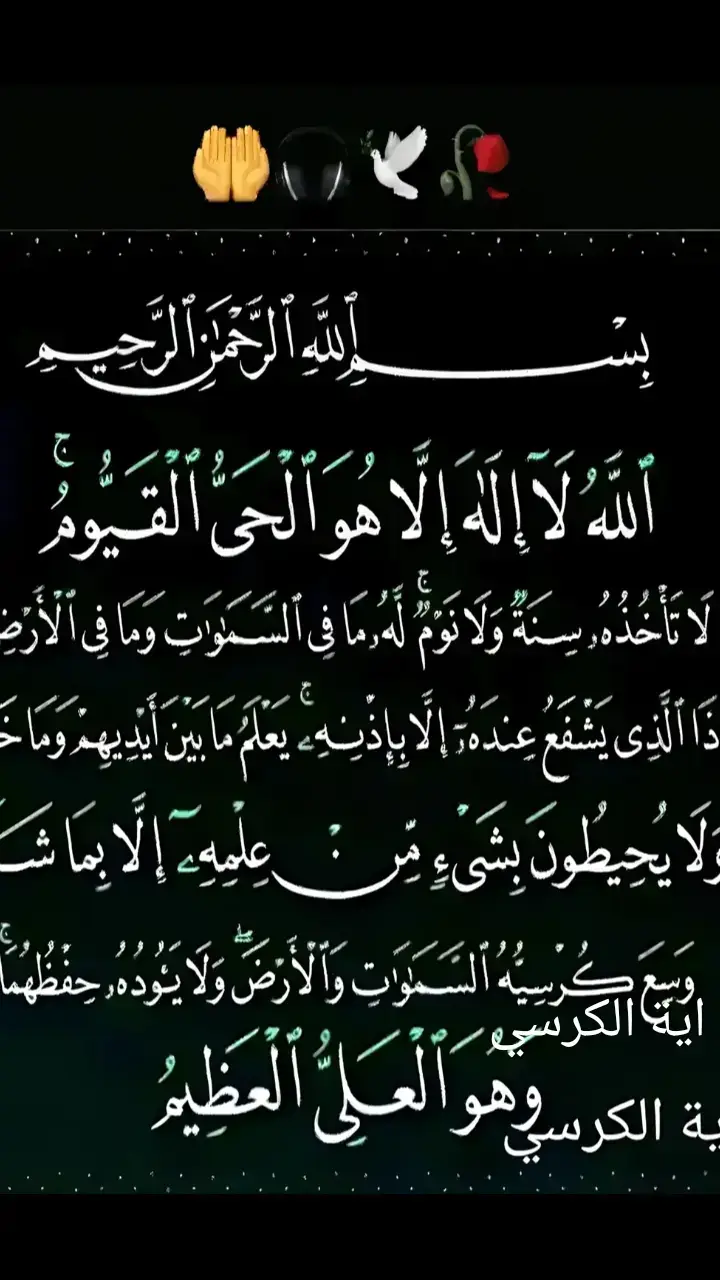 بِسْمِ ٱللَّهِ ٱلرَّحْمَٰنِ ٱلرَّحِيمِ
ٱللَّهُ لَآ إِلَٰهَ إِلَّا هُوَ ٱلْحَىُّ ٱلْقَيُّومُ ۚ
لَا تَأْخُذُهُۥ سِنَةٌ وَلَا نَوْمٌ ۚ لَّهُۥ مَا فِى ٱلسَّمَٰوَٰتِ وَمَا فِى ٱلْأَرْضِ
ذَا ٱلَّذِى يَشْفَعُ عِندَهُۥٓ إِلَّا بِإِذْنِهِۦ ۚ يَعْلَمُ مَا بَيْنَ أَيْدِيهِمْ وَمَا
وَلَا يُحِيطُونَ بِشَىْءٍ مِّنْ عِلْمِهِۦٓ إِلَّا بِمَا
وَسِعَ كُرْسِيُّهُ ٱلسَّمَٰوَٰتِ وَٱلْأَرْضَ ۖ وَلَا يَـُٔودُهُۥ حِفْظُهُمَا ۚ
اية الكرسي
وَهُوَ ٱلْعَلِىُّ ٱلْعَظِيمُ
ية الكرسي